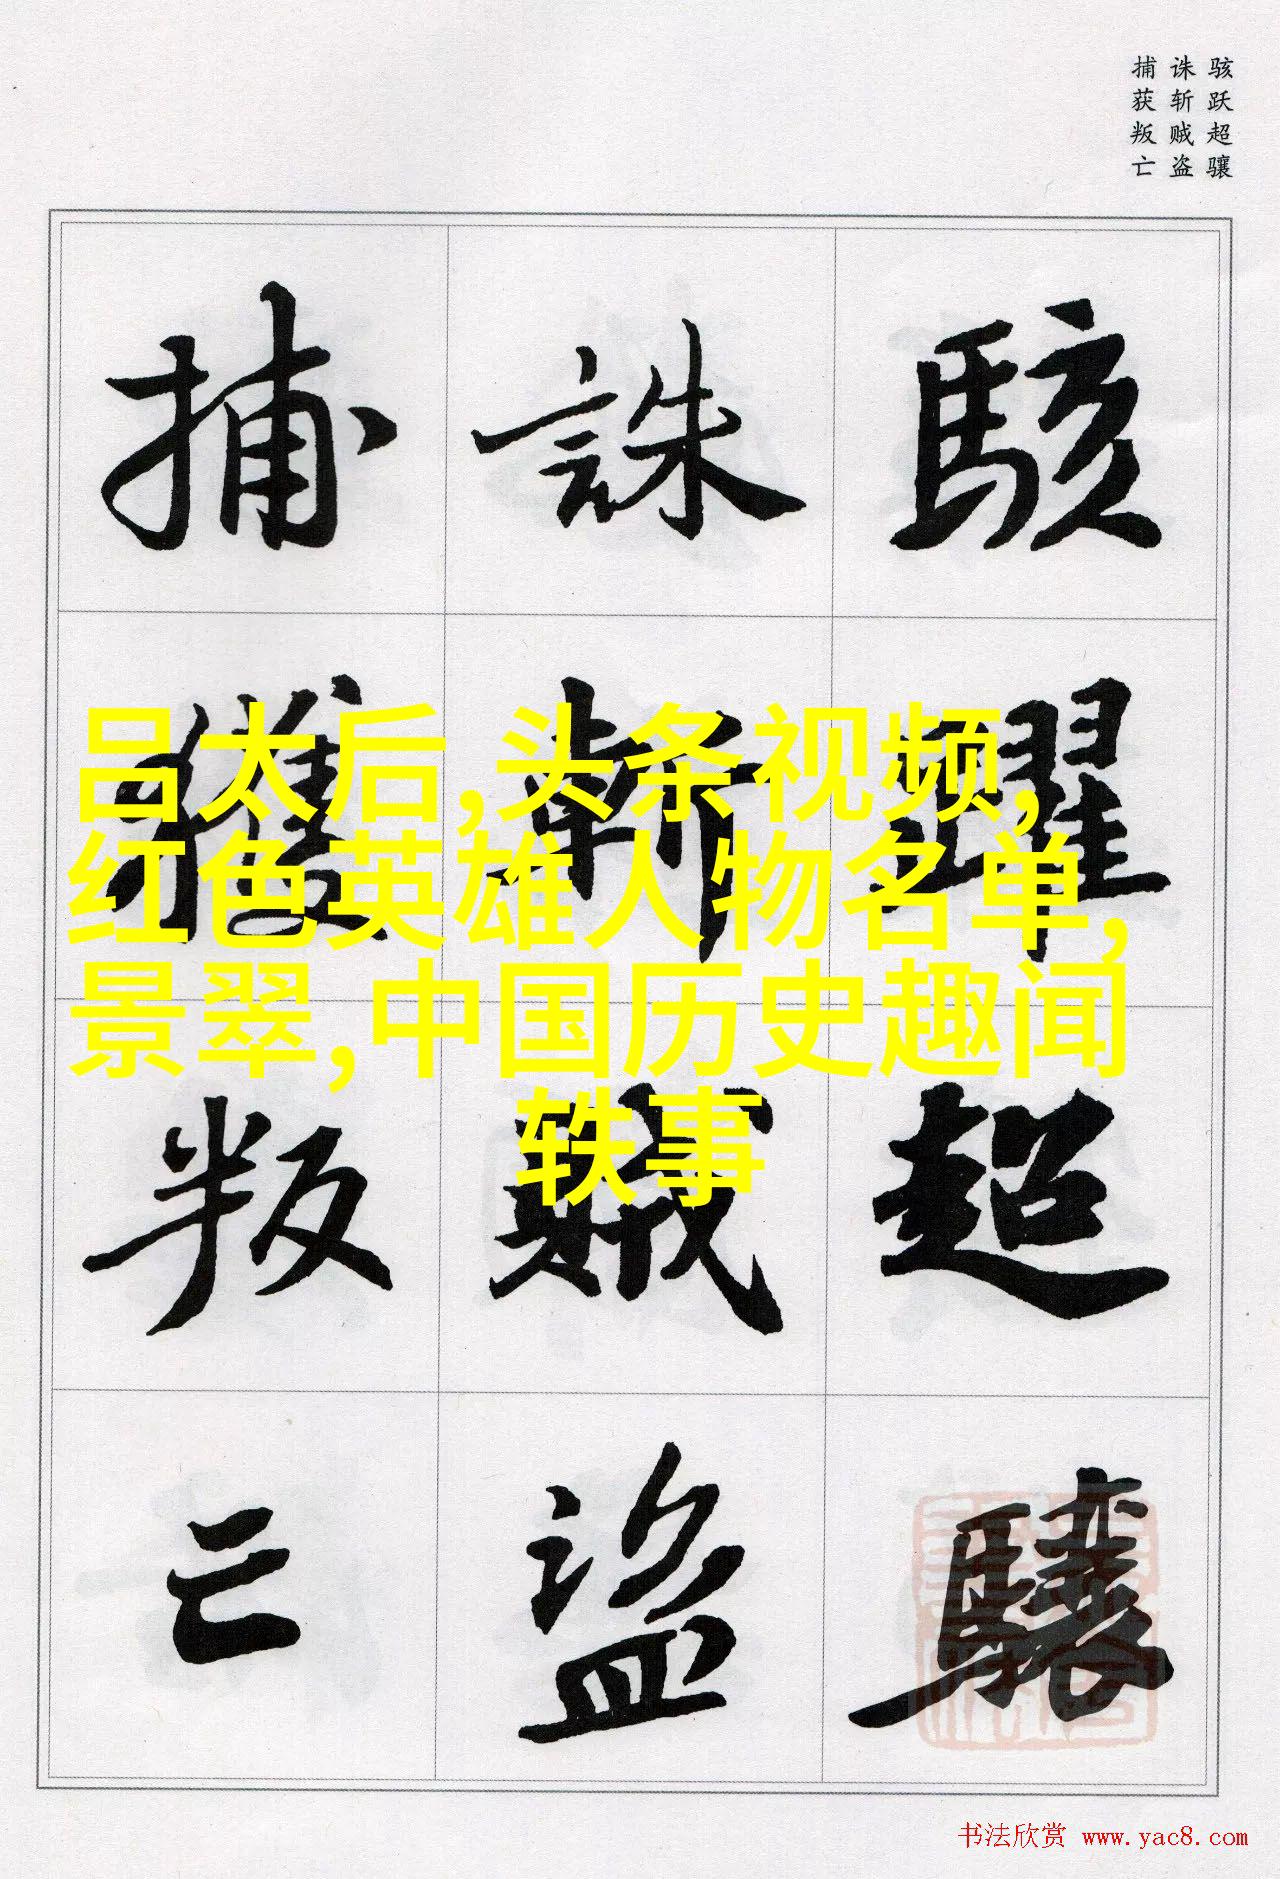 骇跃超骧
诛斩贼盗
捕获叛亡
駭躍超驤
誅斬賊盜
捕獲叛亡
吕太后,头条视频,
红色英雄人物名单,
景翠,中国历史趣闻
轶事
书法欣赏 www.yac8.com